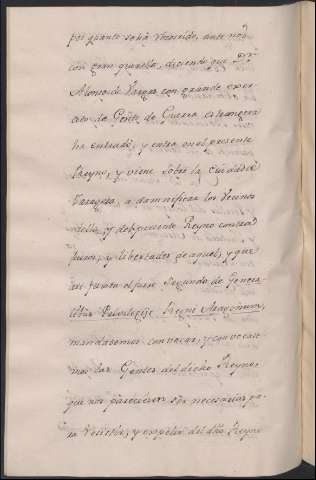 por quanto se ha recorrido, ante nos
con gran querela, diciendo que Dn
Alonso de Vargas con grande exer-
cito de Gente de Guerra estrangera
ha entrado, y entra en el presente
Reyno, y viene sobre la Ciudad de
Zaragoza, a damnificar los Vecinos
della, y del presente Reyno contra
fueros, y libertades de aquel, y que
el fuero Segundo de Genera-
libus Privilegijs Regni Aragonum,
mandasemos convocar, y convocase-
mos las Gentes del dicho Reyno,
que nos pareciesen ser necesarias pa-
ra resistir, y expeler del dho Reyno